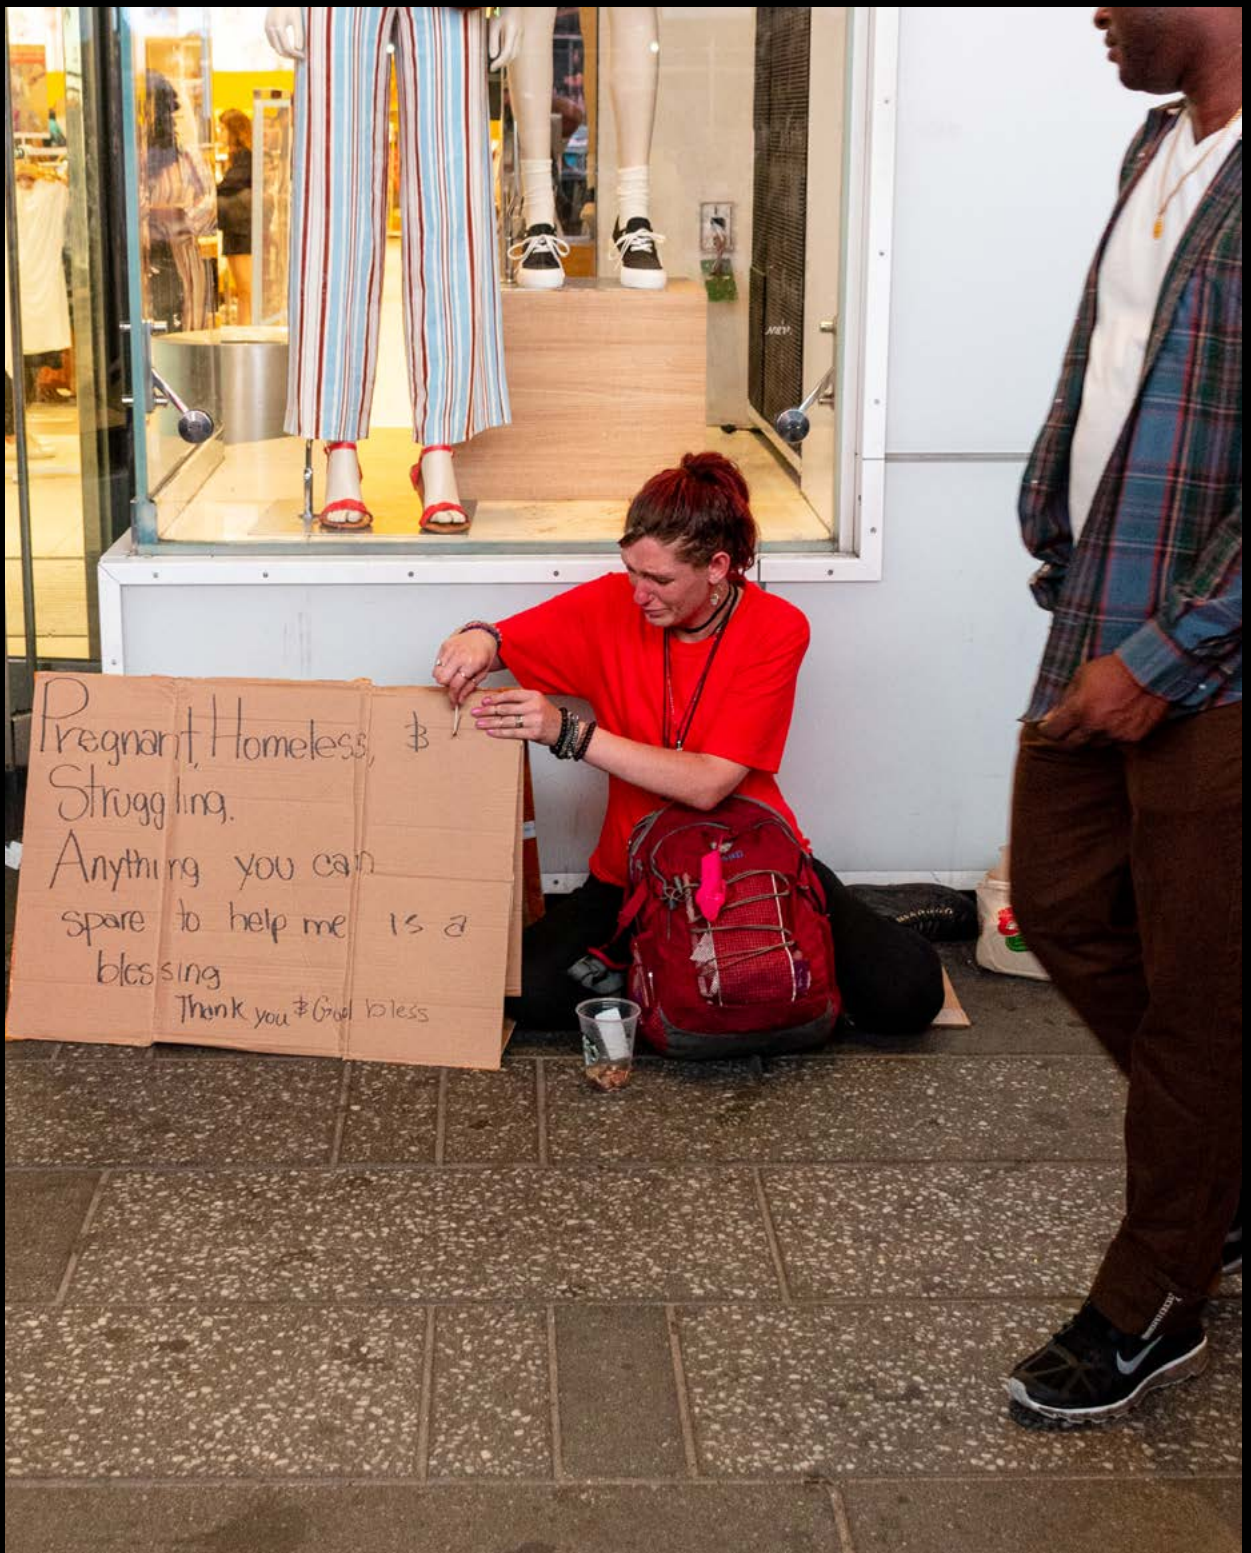 Pregnant, Homeless, &
Struggling.
Anything you can
spare to help me is a
blessing
Thank you & God bless